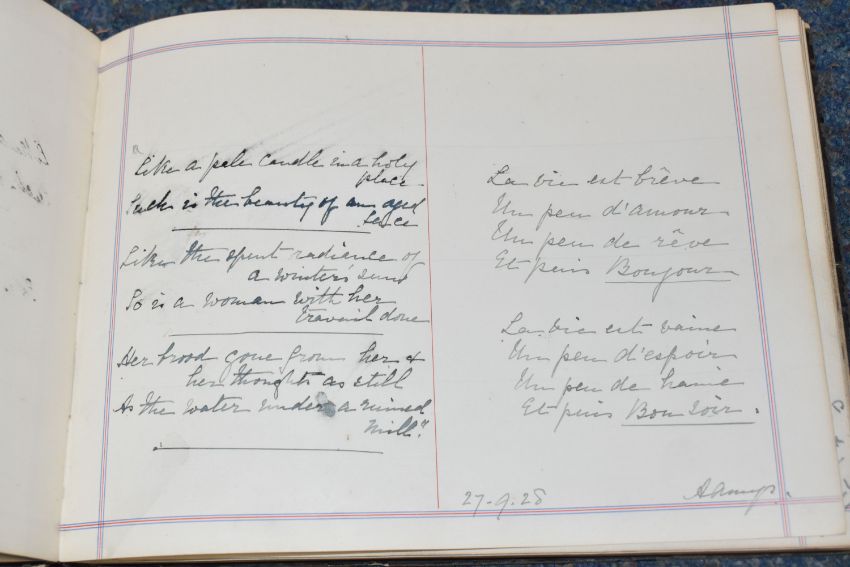 Like a pale candle in a holy
place
Such is the beauty of an aged
face
Like the spent radiance of
a winter's sun
So is a woman with her
travail done
Her brood gone from her &
her thoughts as still
As the water under a ruined
mill."
La vie est brêve
Un peu d'amour
Un peu de rêve
Et puis Bonjour
La vie est vaine
Un peu d'espoir
Un peu de haine
Et puis Bon soir.
27-9.28